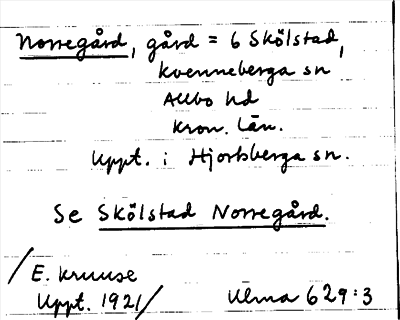 Norregård, gård = 6 Skölstad,
Kvenneberga sn
Allbo hd
Kron. län.
Uppt. i Hjortsberga sn.
Se Skölstad Norregård.
/E. Kruuse
Uppt. 1921/ Ulma 629:3